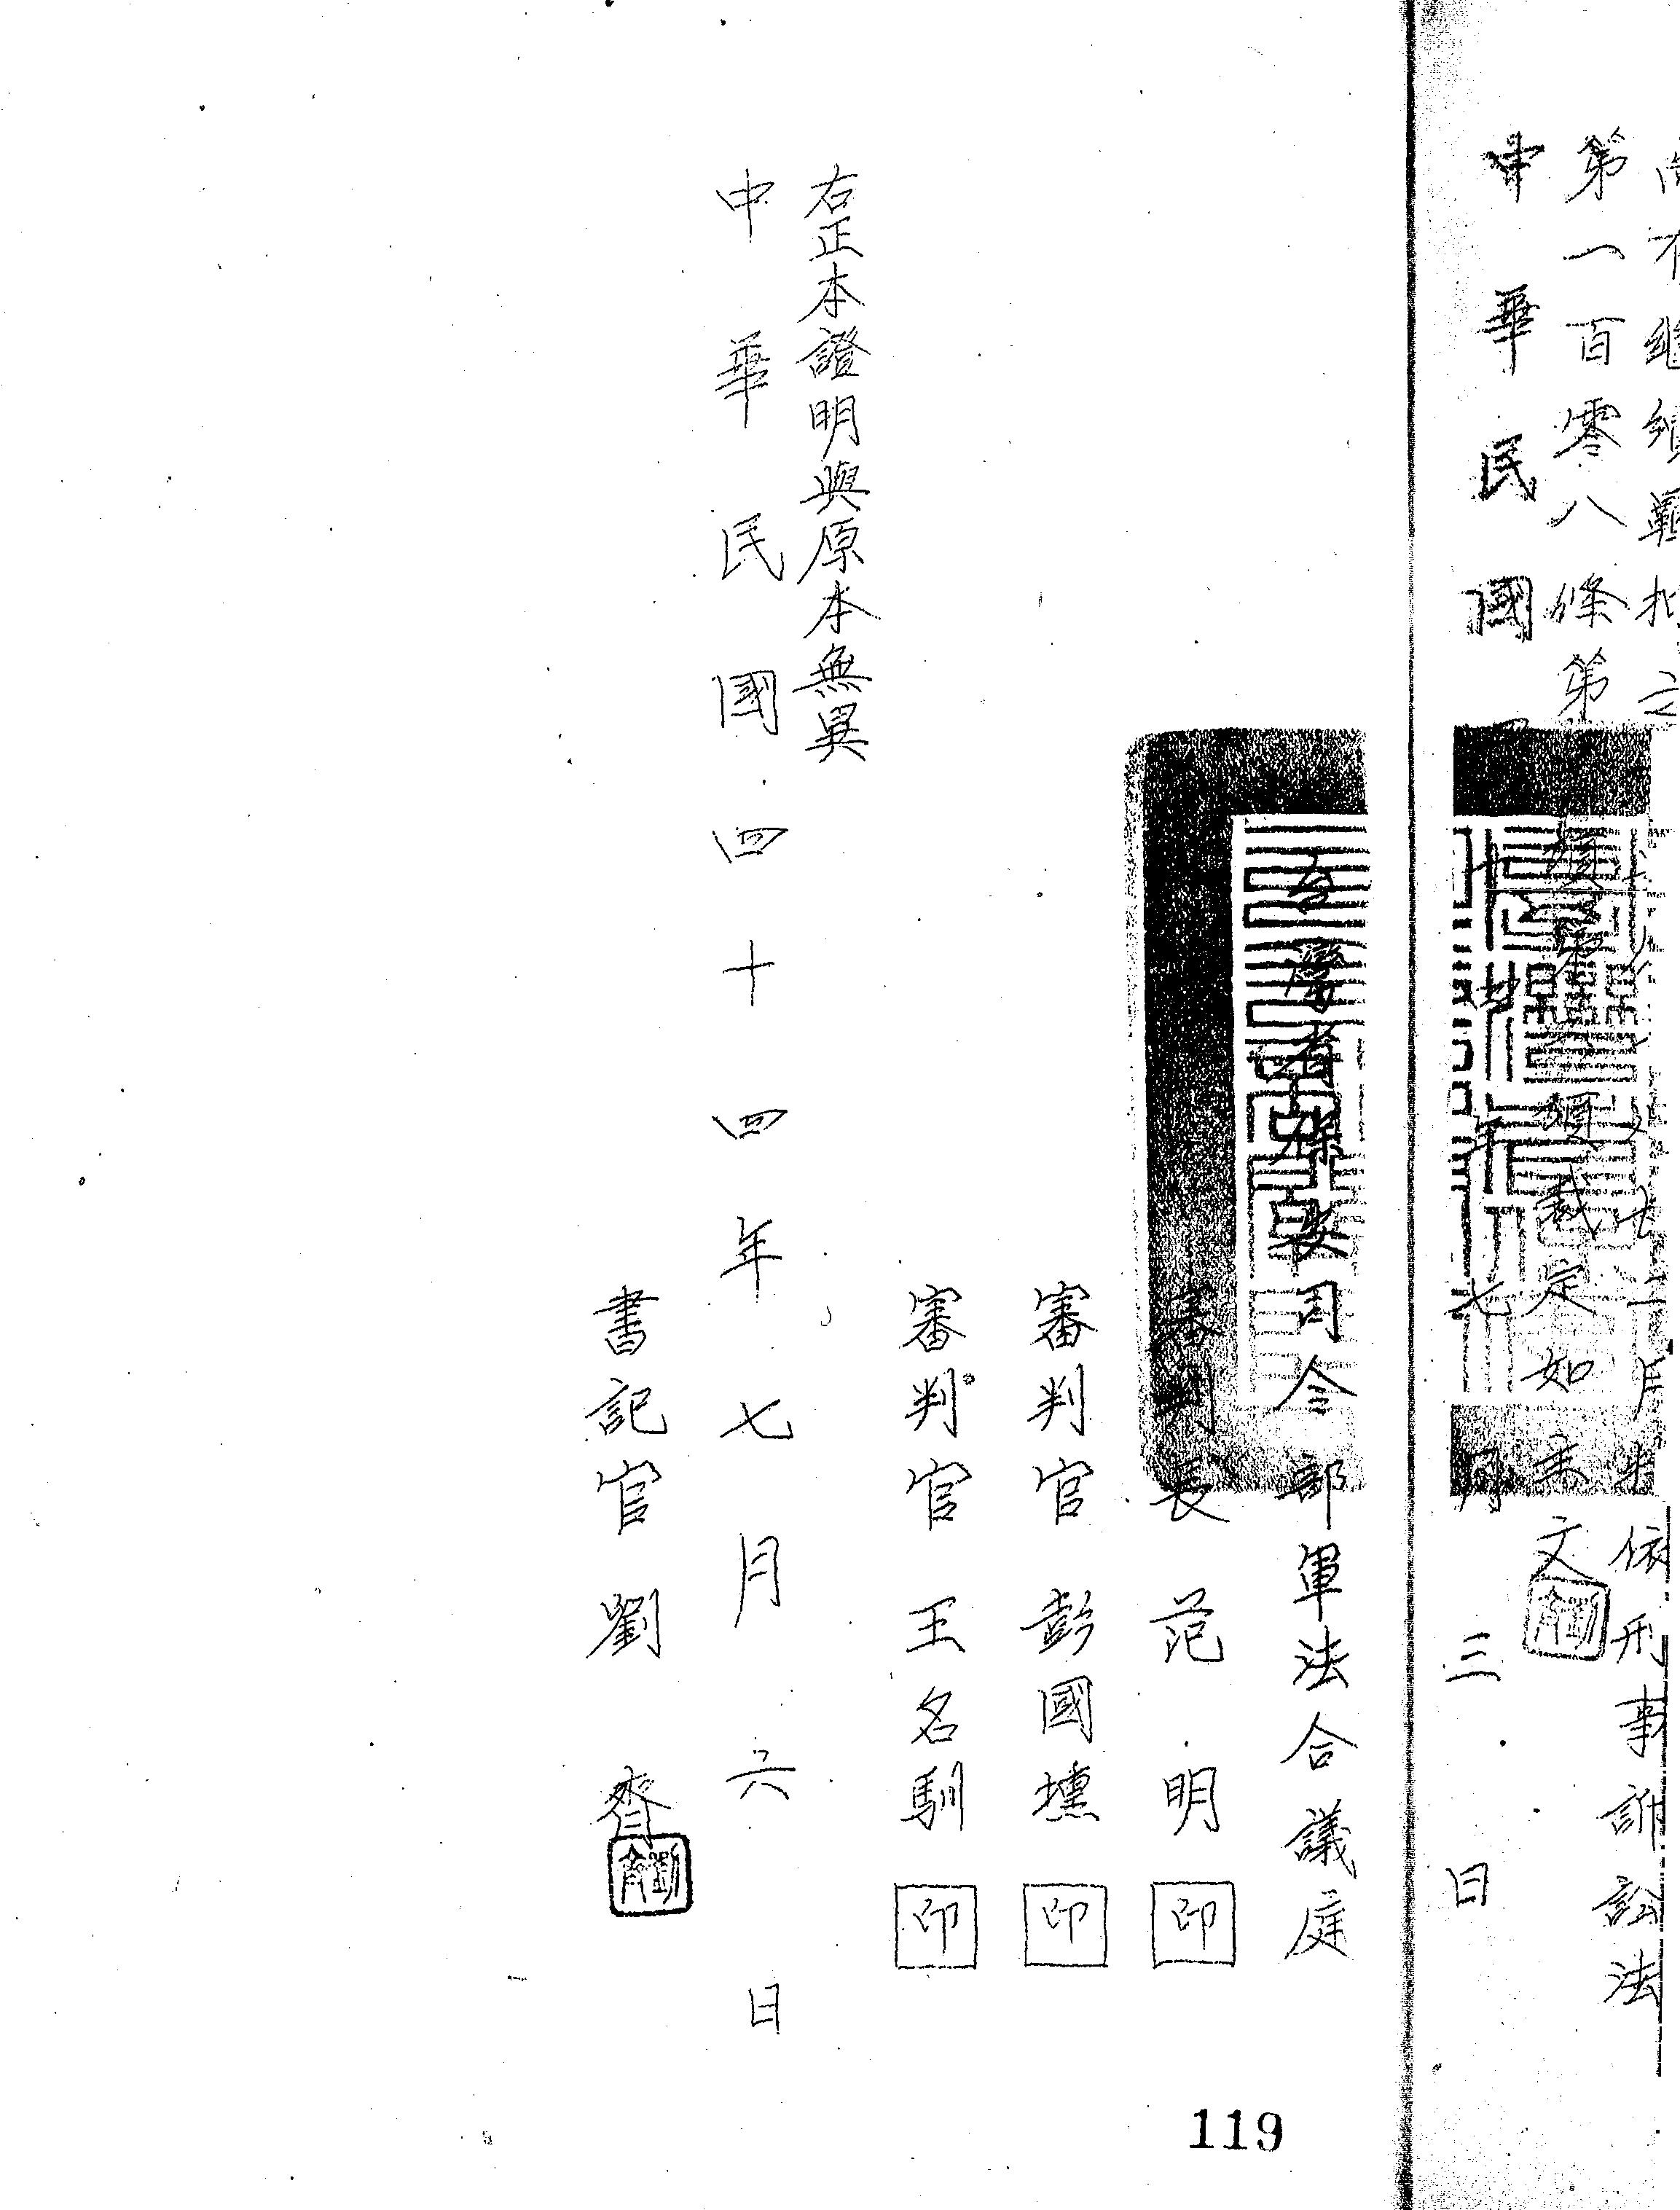 繼續羈押之 依刑事訴訟法
第一百零八條第項第項裁定如主文
中華民國四十四年七月三日
台灣省保安司令部軍法合議庭
審判長 范明 印
審判官 彭國壎 印
審判官 王名馴 印
右正本證明與原本無異
中華民國四十四年七月六日
書記官 劉齊
119